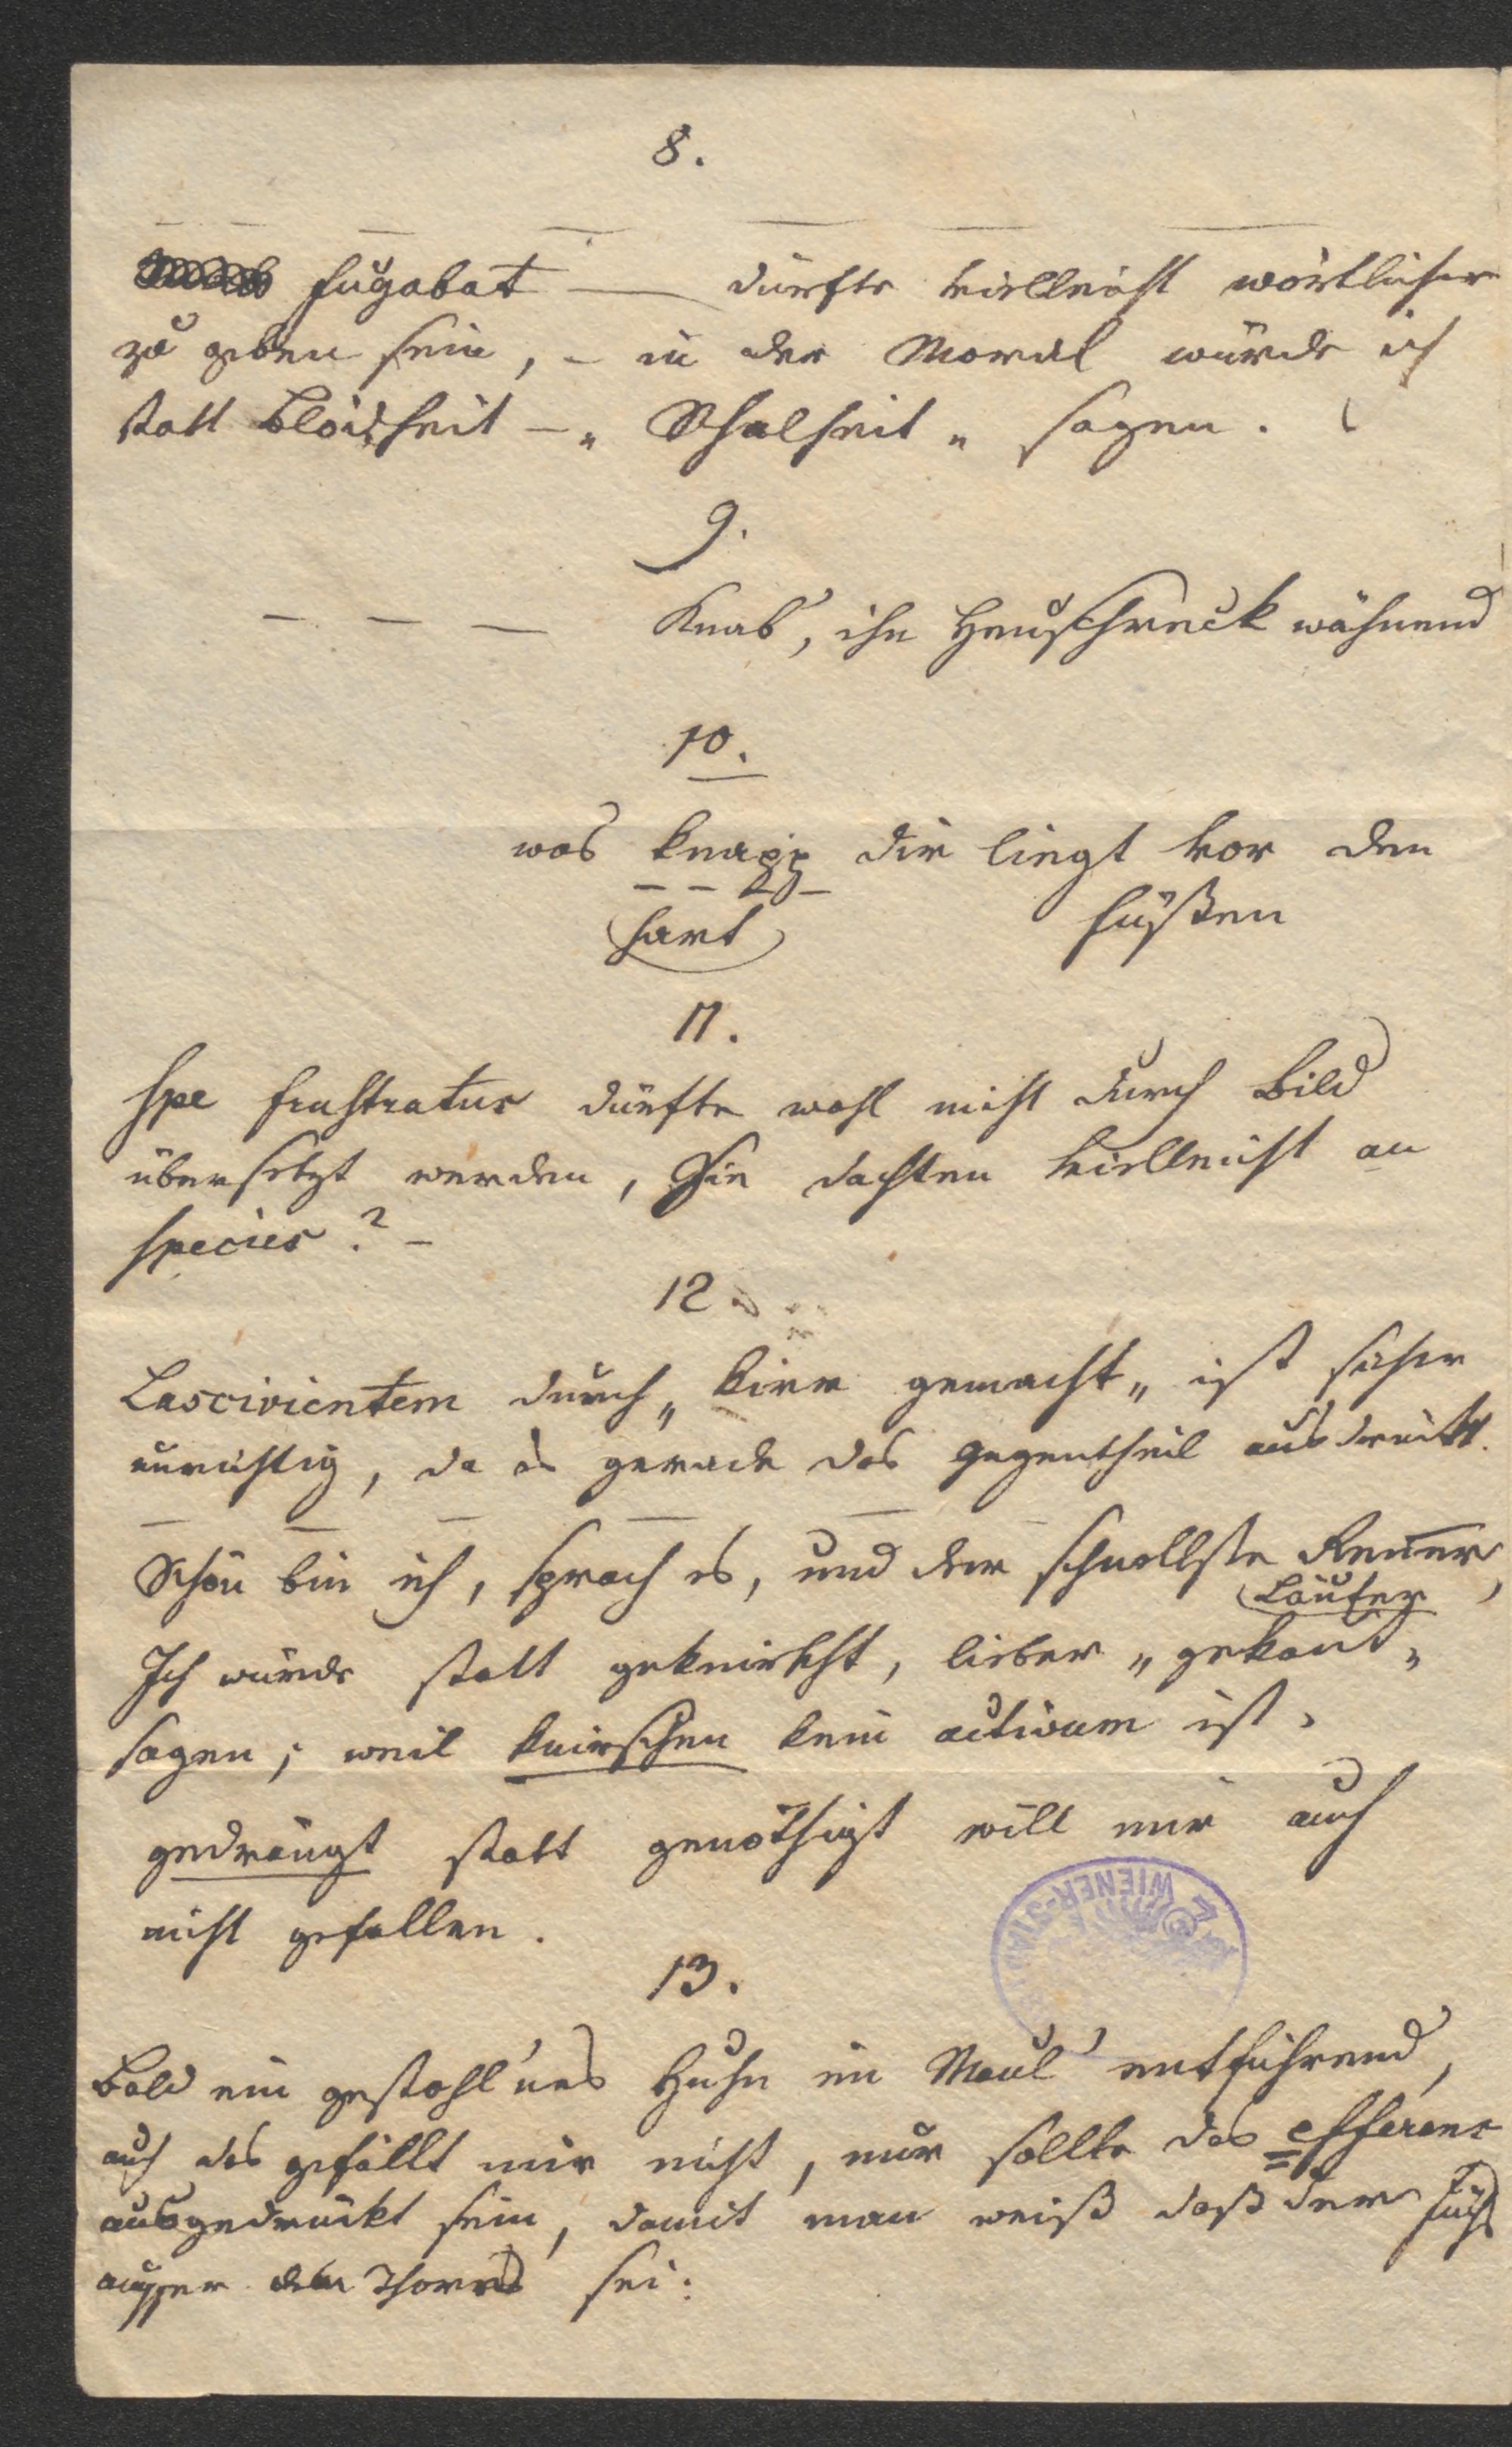 8.
fugabat — dürfte vielleicht wörtlicher
zu geben sein, – in der Moral würde ich
statt Blödheit – „Schalheit„ sagen.
9.
– – – Knab', ihn Heuschreck wähnend
10.
was knapp dir liegt vor den
(hart) Füßen
11.
Spe frustratus dürfte wohl nicht durch Bild
übersetzt werden, Sie dachten vielleicht an
species? –
12.
Lascivientem durch „kirre gemacht„ ist sicher
unrichtig, da es gerade das Gegentheil ausdrückt.
Schön bin ich, sprach es, und der schnellste Renner,
(Läufer)
Ich würde statt geknirscht, lieber „gekaut„
sagen; weil knirschen kein activum ist,
gedrängt statt genöthigt will mir auch
nicht gefallen.
WIENER-STADT
13.
Bald ein gestohl'nes Huhn im Maul entführend,
auch das gefällt mir nicht, nur sollte das efferens
ausgedrückt sein, damit man weiß daß der Fuchs
ausser dem Thore sei: